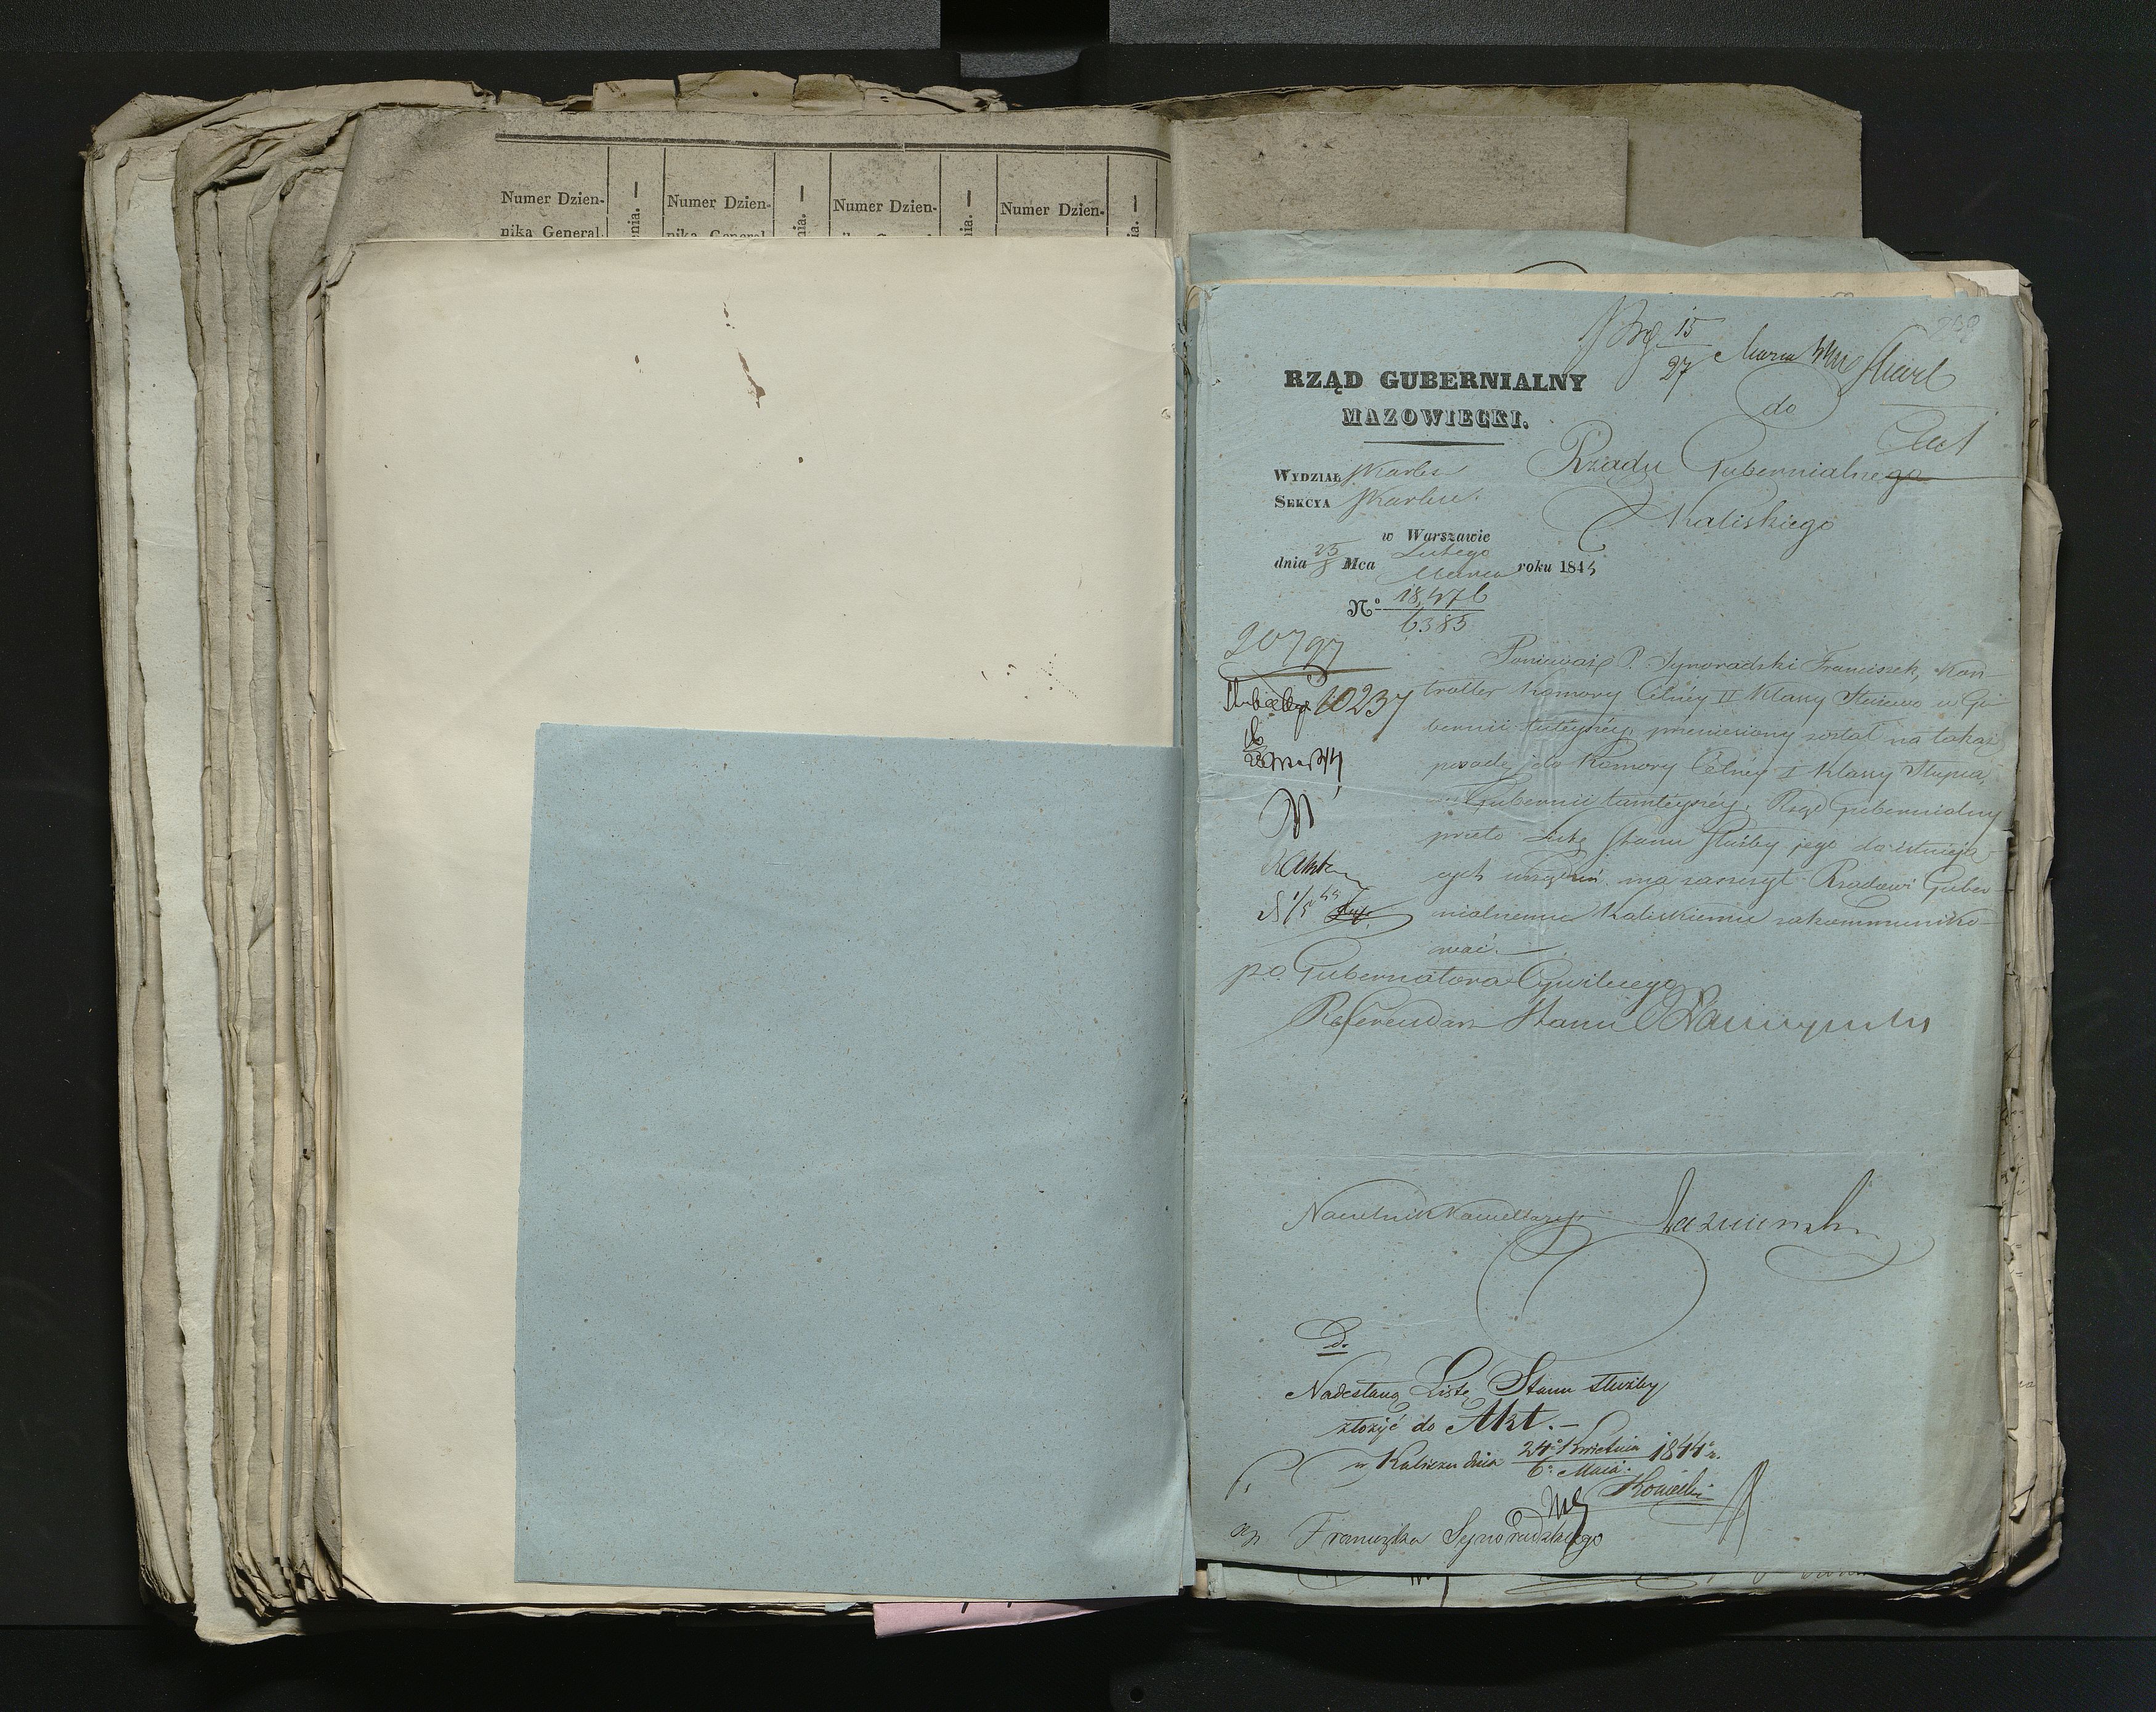 Numer Dzien- Numer Dzien- Numer Dzien- Numer Dzien-
nika General.
15
27 Marca Skarb
do
Akt
RZĄD GUBERNIALNY
MAZOWIECKI.
Rządu Gubernialnego
Kaliskiego
WYDZIAŁ Skarbu
SEKCYA Skarbu
w Warszawie
dnia 25/8 Mca Lutego/Marca roku 1844
N° 18,476
6385
20797
10237
Ponieważ P. Synoradzki Franciszek, Kon-
troller Komory Celnéy II Klassy Służewo w Gu-
bernii tuteyszéy, przeniesiony został na takąż
posadę do Komory Celnéy I Klassy Słupca,
w Gubernii tamteyszéy, Rząd Gubernialny
przeto Listę Stanu Służby jego do istnieją-
cych urządzeń ma zaszczyt Rządowi Guber-
nialnemu Kaliskiemu zakommuniko-
wać.
p.o. Gubernatora Cywilnego
Referendarz Stanu
Naczelnik Kancellaryi
D.
Nadesłaną Listę Stanu służby
złożyć do Akt.-
w Kaliszu dnia 24° Kwietnia/6° Maia 1844 r.
Franciszka Synoradzkiego